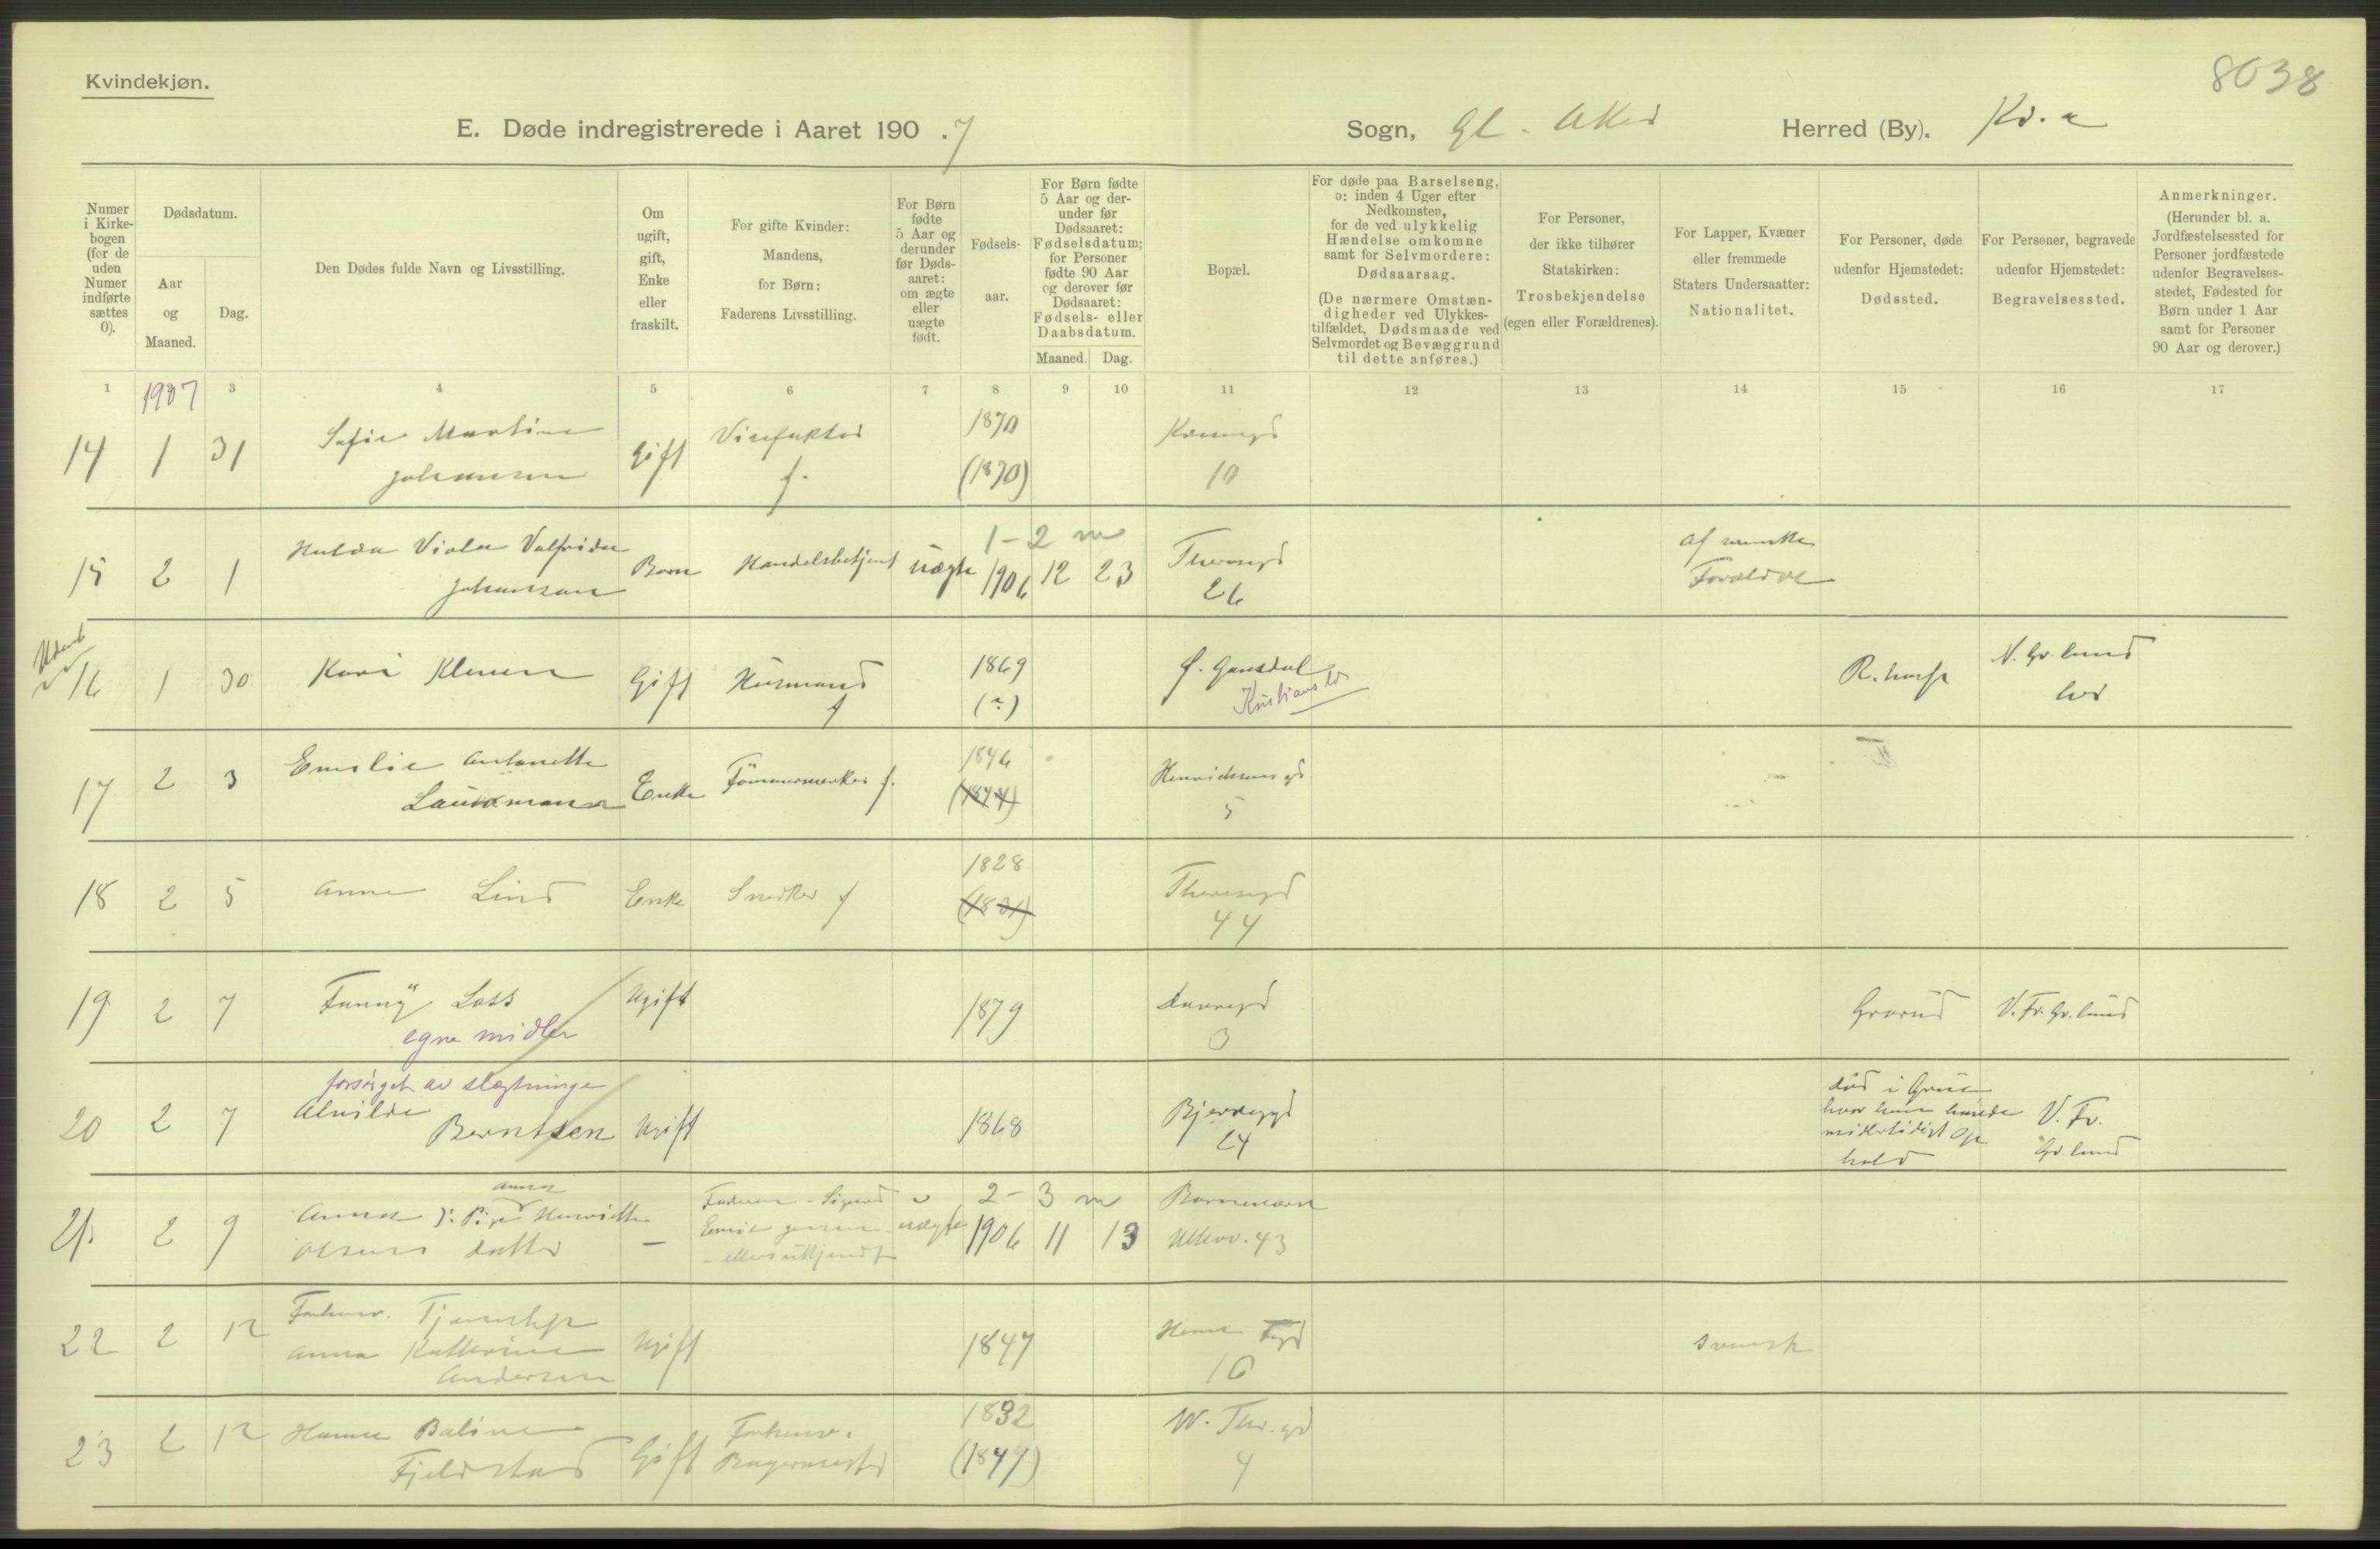 Kvindekjøn.
8038
E. Døde indregistrerede i Aaret 190 . 7 Sogn, Gl. Aker Herred (By). Kr.a
Numer i Kirke-bogen (for de uden Numer indførte sættes 0).
Dødsdatum.
Aar og Maaned.
Dag.
Den Dødes fulde Navn og Livsstilling.
Om ugift, gift, Enke eller fraskilt.
For gifte Kvinder: Mandens, for Børn: Faderens Livsstilling.
For Børn fødte 5 Aar og derunder før Døds-aaret: om ægte eller uægte født.
Fødsels-aar.
For Børn fødte 5 Aar og der-under før Dødsaaret: Fødselsdatum; for Personer fødte 90 Aar og derover før Dødsaaret: Fødsels- eller Daabsdatum.
Maaned. Dag.
Bopæl.
For døde paa Barselseng, ɔ: inden 4 Uger efter Nedkomsten, for de ved ulykkelig Hændelse omkomne samt for Selvmordere: Dødsaarsag.
(De nærmere Omstæn-digheder ved Ulykkes-tilfældet, Dødsmaade ved Selvmordet og Bevæggrund til dette anføres.)
For Personer, der ikke tilhører Statskirken: Trosbekjendelse (egen eller Forældrenes).
For Lapper, Kvæner eller fremmede Staters Undersaatter: Nationalitet.
For Personer, døde udenfor Hjemstedet: Dødssted.
For Personer, begravede udenfor Hjemstedet: Begravelsessted.
Anmerkninger.
(Herunder bl. a. Jordfæstelsessted for Personer jordfæstede udenfor Begravelses-stedet, Fødested for Børn under 1 Aar samt for Personer 90 Aar og derover.)
1 3 4 5 6 7 8 9 10 11 12 13 14 15 16 17
1907
14 1 31 Sofie Martine Johansen Gift Visefaktor f. 1870 (1870) 10
15 2 1 Hulda Viola Valfrida Johansson Barn Handelsbetjent uægte 1-2 m 1906 12 23 Theresgd 26 Af svenske Forældre
16 1 30 Kari Gift Husmand f 1869 (?) Ø. Gausdal Kristians R. hosp N. Gr. lund
17 2 3 Emilie Antonette Enke Tømmermerker f. 1846 (1844) Henrichsens gd 5
18 2 5 Anna Lind Enke Snedker f 1828 (1831) Theresegd 44
19 2 7 Fanny Lass egne midler Ugift 1879 3 Grorud V. Fr. Gr. lund
20 2 7 forsørget av slægtninge Alvilde Berntsen Ugift 1868 Bjerregd 24 død i Grue hvor hun havde midlertidigt Op hold V. Fr. Gr. lund
21 2 9 Anna ): Pige Anna Henriette Olsens datter - Faderen - Sigurd Emil Jensen - ellers ukjendt uægte 2-3 m 1906 11 13 Ullevv. 43
22 2 12 Forhenv. Tjenestep Anna Kathrine Andersen Ugift 1847 16 svensk
23 2 12 Hanna Baline Fjeldstad Gift Forhenv. Bagermester 1832 (1847) W. Thr. gd 4